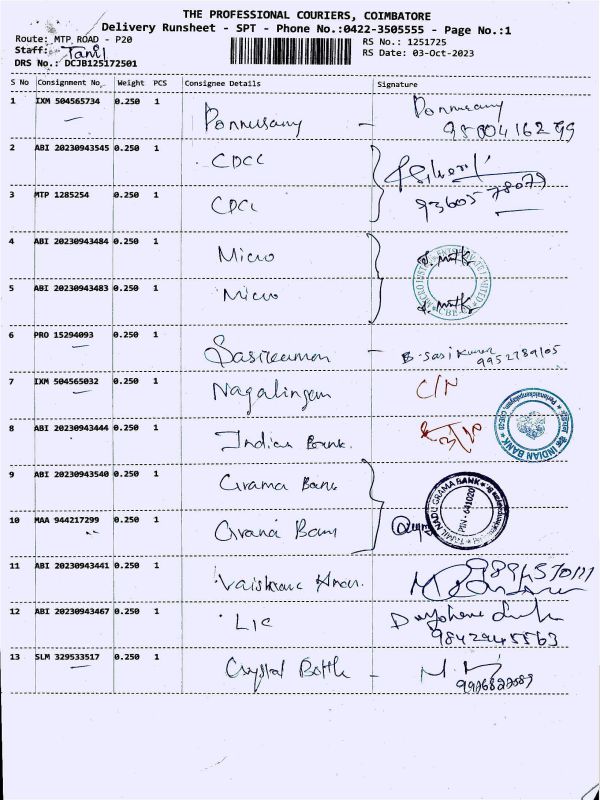 THE PROFESSIONAL COURIERS, COIMBATORE
Delivery Runsheet - SPT - Phone No.:0422-3505555 - Page No.:1
Route: MTP ROAD - P20
RS No.: 1251725
Staff: Tamil
RS Date: 03-Oct-2023
DRS No.: DCJB125172501
S No Consignment No Weight PCS Consignee Details Signature
1 IXM 504565734 0.250 1 Ponnusamy - Ponnusamy
2 ABI 20230943545 0.250 1 CDCC
3 MTP 1285254 0.250 1 CDCC
4 ABI 20230943484 0.250 1 Micro
5 ABI 20230943483 0.250 1 Micro
6 PRO 15294093 0.250 1 Sasikumar - B. Sasi Kumar
9952789105
7 IXM 504565032 0.250 1 Nagalingam C/N
8 ABI 20230943444 0.250 1 Indian Bank. INDIAN BANK
9 ABI 20230943540 0.250 1 Grama Bank TAMIL NADU GRAMA BANK
10 MAA 944217299 0.250 1 Grama Bank PIN - 641020
11 ABI 20230943441 0.250 1
12 ABI 20230943467 0.250 1 LIC
9842945563
13 SLM 329533517 0.250 1 Crystal Bottle -